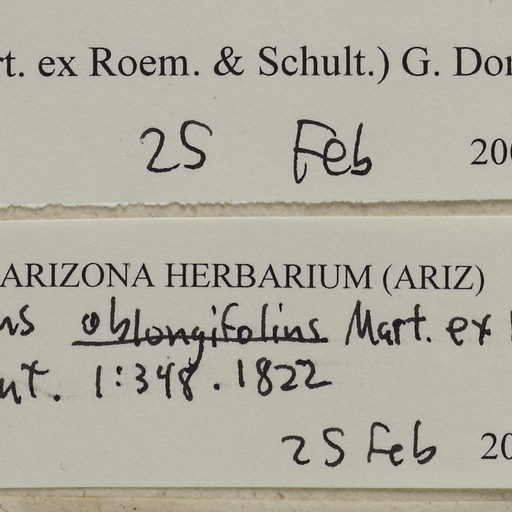 rt. ex Roem. & Schult.) G. Don
25 Feb 200
ARIZONA HERBARIUM (ARIZ)
ns oblongifolius Mart. ex
nt. 1:348. 1822
25 Feb 20